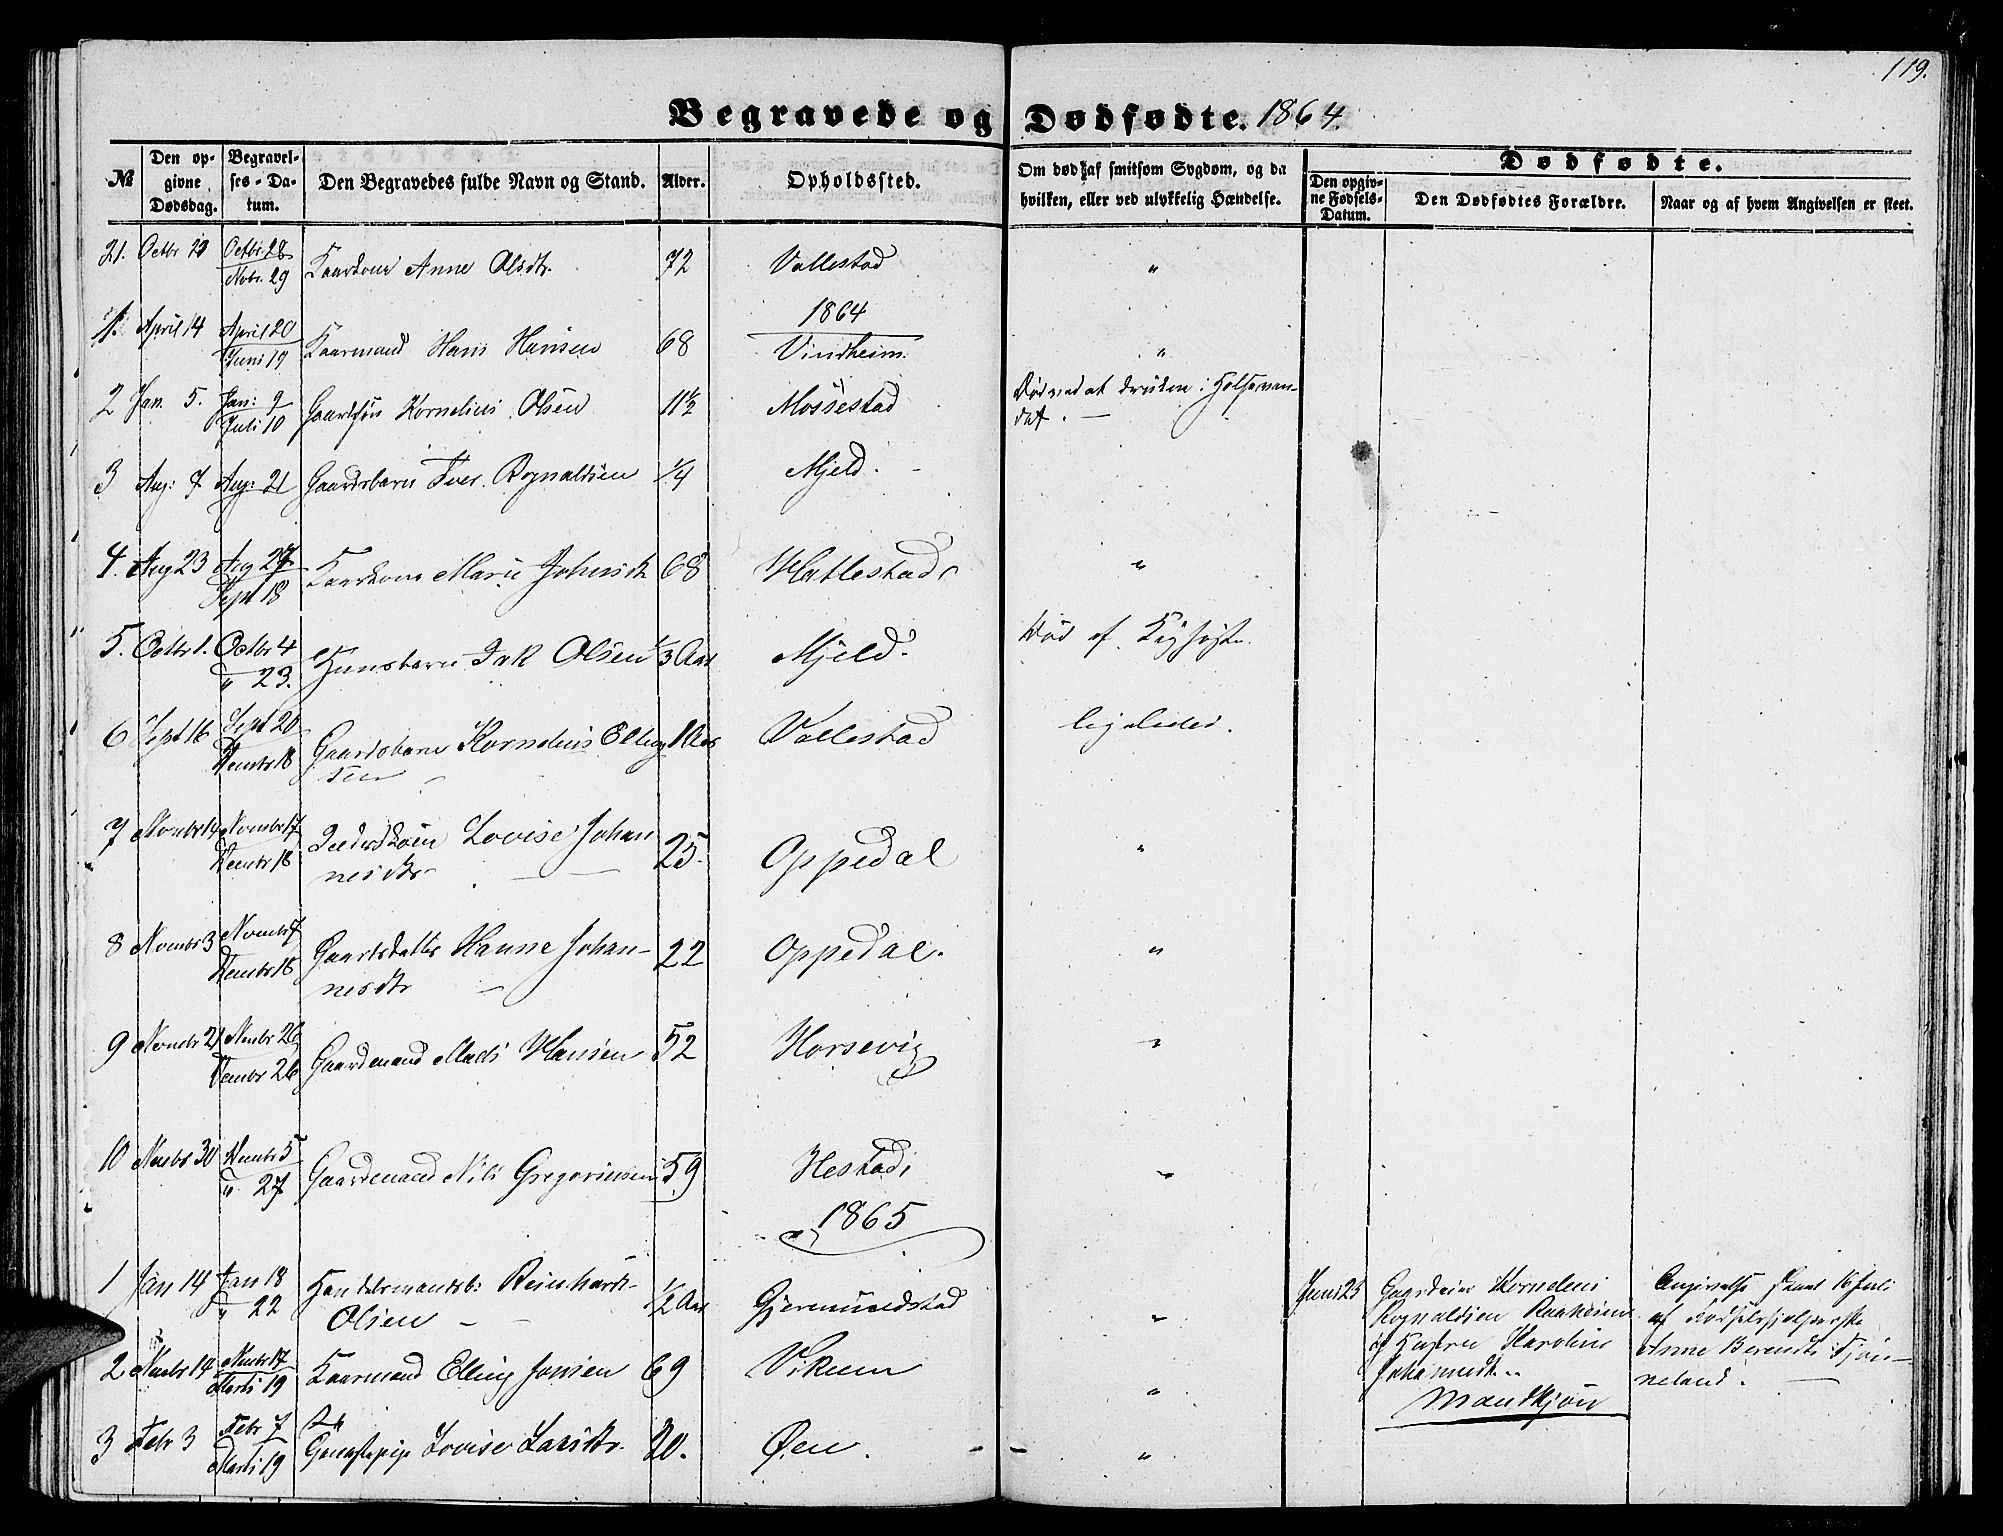 119.
Begravede og Dødfødte. 1864.
№ Den opgivne Dødsdag. Begravelses-Datum. Den Begravedes fulde Navn og Stand. Alder. Opholdssted. Om død af smitsom Sygdom, og da hvilken, eller ved ulykkelig Hændelse. Dødfødte. Den opgivne Fødsels-Datum. Den Dødfødtes Forældre. Naar og af hvem Angivelsen er skeet.
21. Octbr Octbr 28 Novbr. 29 Kaarkone Anne Olsdtr. 72 Vallestad "
1864
1. April 14 April 20 Juni 19 Kaarmand Hans Hansen 68 Vindheim. "
2 Jan. 5. Jan: 9 Juli 10 Gaardsøn Kornelius Olsen 11½ Mossestad Død ved at drukne i Holsevan-
det. —
3 Aug: 7 Aug: 21 Gaardsbarn Iver Rognaldsen ¼ Mjeld.
4. Aug 23 Aug 27. Sept 18 Kaarkone Marie 68 Hatlestad "
5. Octbr 1. Octbr 4 " 23. Olsen ⅓ Aar Mjeld. Død af Kighoste.
6 Sept 16 Sept 20 Decmbr 18 Gaardsbarn Kornelius Elling
sen 1 Aar Vallestad ligeledes.
7 Novmbr 14 Novmbr 17 Decmbr 18 Lovise Johan
nesdtr 25. Oppedal "
8 Novmbr 3 Novmbr 7 Decmbr 18 Gaardsdatter Hanne Johan-
nesdtr — 22 Oppedal. "
9 Novmbr 21 Novmbr 26 Decmbr 26 Gaardmand Mads Hansen 52 Horsevig "
10 Novmbr 30 Decmbr 5 " 27 Gaardmand Nils Gregoriussen 59 Hestad "
1865
1 Jan 14 Jan 18 " 22 Handelsmandsb: Reinhardt
Olsen — ½ Aar Gjermundstad " Juni 25 Gaardeier Kornelius
Rognaldsen Raaheim
og Hustru Karoline
Johannesdt..
Mandkjøn
Angivelse skeet 16 Juli
af Fødselshjelperske
Anne Berendt:
neland. —
2 Novmbr 14 Novmbr 17 Marts 19 Kaarmand Elling Jonsen 69 Vikum "
3 Febr 3 Febr 7 Marts 19 Lovise Larsdtr. 20. Øen. "